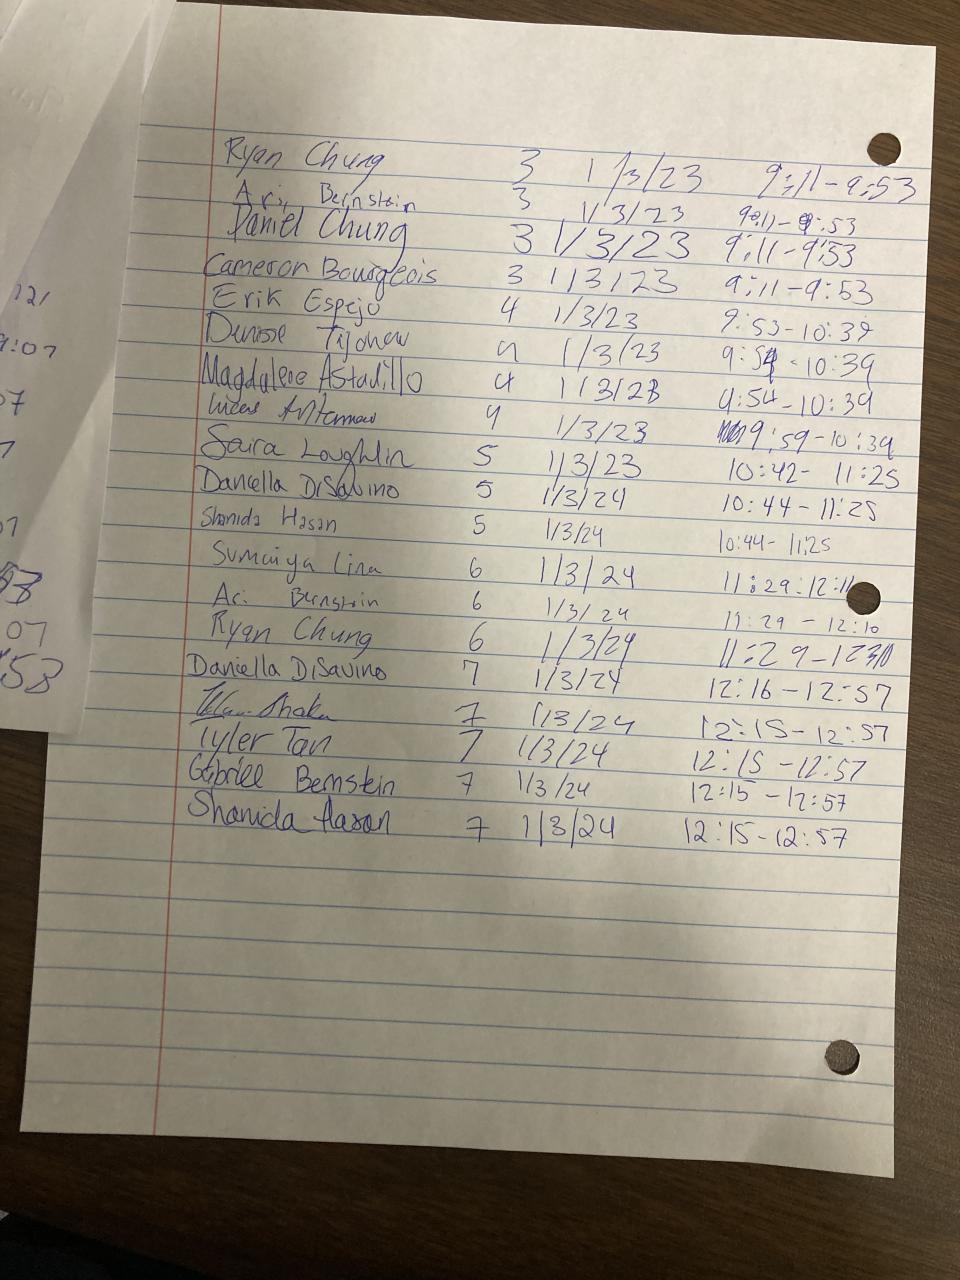 Ryan Chung 3 1/3/23 9:11-9:53
Ari Bernstein 3 1/3/23 9:11-9:53
Daniel Chung 3 1/3/23 9:11-9:53
Cameron Bourgeois 3 1/3/23 9:11-9:53
Erik Espejo 4 1/3/23 9:53-10:39
Denisse 4 1/3/23 9:54-10:39
Magdalene Astudillo 4 1/3/23 9:54-10:39
Lucas 4 1/3/23 9:59-10:39
Saira Loughlin 5 1/3/23 10:42-11:25
Daniella DiSavino 5 1/3/24 10:44-11:25
Shanida Hasan 5 1/3/24 10:44-11:25
Sumaiya Lina 6 1/3/24 11:29-12:11
Ari Bernstein 6 1/3/24 11:29-12:10
Ryan Chung 6 1/3/24 11:29-
Daniella DiSavino 7 1/3/24 12:16-12:57
7 1/3/24 12:15-12:57
Tyler Tan 7 1/3/24 12:15-12:57
Gabriel Bernstein 7 1/3/24 12:15-12:57
Shanida Hasan 7 1/3/24 12:15-12:57